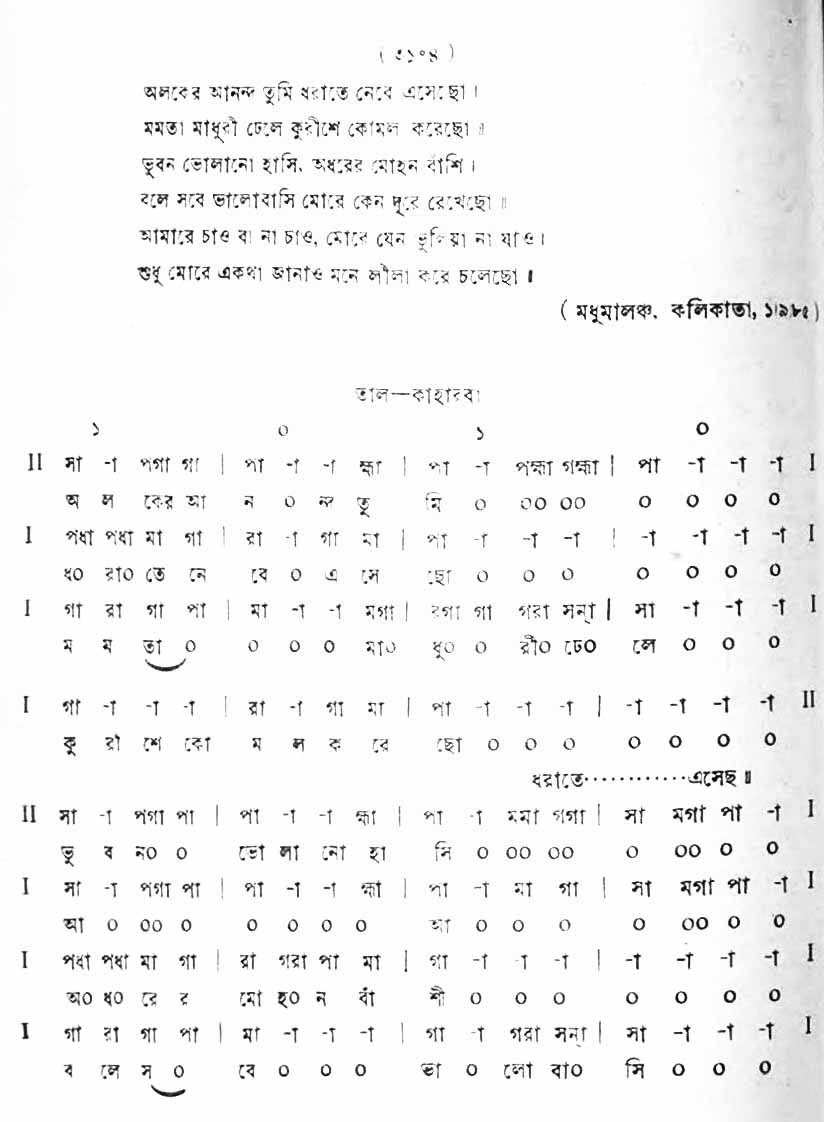 ( ৩১০৪ )
অলকের আনন্দ তুমি ধরাতে নেবে এসেছো।
মমতা মাধুরী ঢেলে কুরীশে কোমল করেছো॥
ভুবন ভোলানো হাসি, অধরের মোহন বাঁশি।
বলে সবে ভালোবাসি মোরে কেন দূরে রেখেছো॥
আমারে চাও বা না চাও, মোরে যেন ভুলিয়া না যাও।
শুধু মোরে একথা জানাও মনে লীলা করে চলেছো॥
( মধুমালঞ্চ, কলিকাতা, ১।৯।৮৫ )
তাল—কাহারবা
১ ০ ১ ০
II সা -া পগা গা | পা -া -া হ্মা | পা -া পহ্মা গহ্মা | পা -া -া -া I
অ ল কের আ ন ০ ন্দ তু মি ০ ০০ ০০ ০ ০ ০ ০
I পধা পধা মা গা | রা -া গা মা | পা -া -া -া | -া -া -া -া I
ধ০ রা০ তে নে বে ০ এ সে ছো ০ ০ ০ ০ ০ ০ ০
I গা রা গা পা | মা -া -া মগা | রগা গা গরা সন্া | সা -া -া -া I
ম ম তা ০ ০ ০ ০ মা০ ধু০ ০ রী০ ঢে০ লে ০ ০ ০
I গা -া -া -া | রা -া গা মা | পা -া -া -া | -া -া -া -া II
কু রী শে কো ম ল ক রে ছো ০ ০ ০ ০ ০ ০ ০
ধরাতে············এসেছ॥
II সা -া পগা পা | পা -া -া হ্মা | পা -া মমা গগা | সা মগা পা -া I
ভু ব ন০ ০ ভো লা নো হা সি ০ ০০ ০০ ০ ০০ ০ ০
I সা -া পগা পা | পা -া -া হ্মা | পা -া মা গা | সা মগা পা -া I
আ ০ ০০ ০ ০ ০ ০ ০ আ ০ ০ ০ ০ ০০ ০ ০
I পধা পধা মা গা | রা গরা পা মা | গা -া -া -া | -া -া -া -া I
অ০ ধ০ রে র মো হ০ ন বাঁ শী ০ ০ ০ ০ ০ ০ ০
I গা রা গা পা | মা -া -া -া | গা -া গরা সন্া | সা -া -া -া I
ব লে স ০ বে ০ ০ ০ ভা ০ লো বা০ সি ০ ০ ০